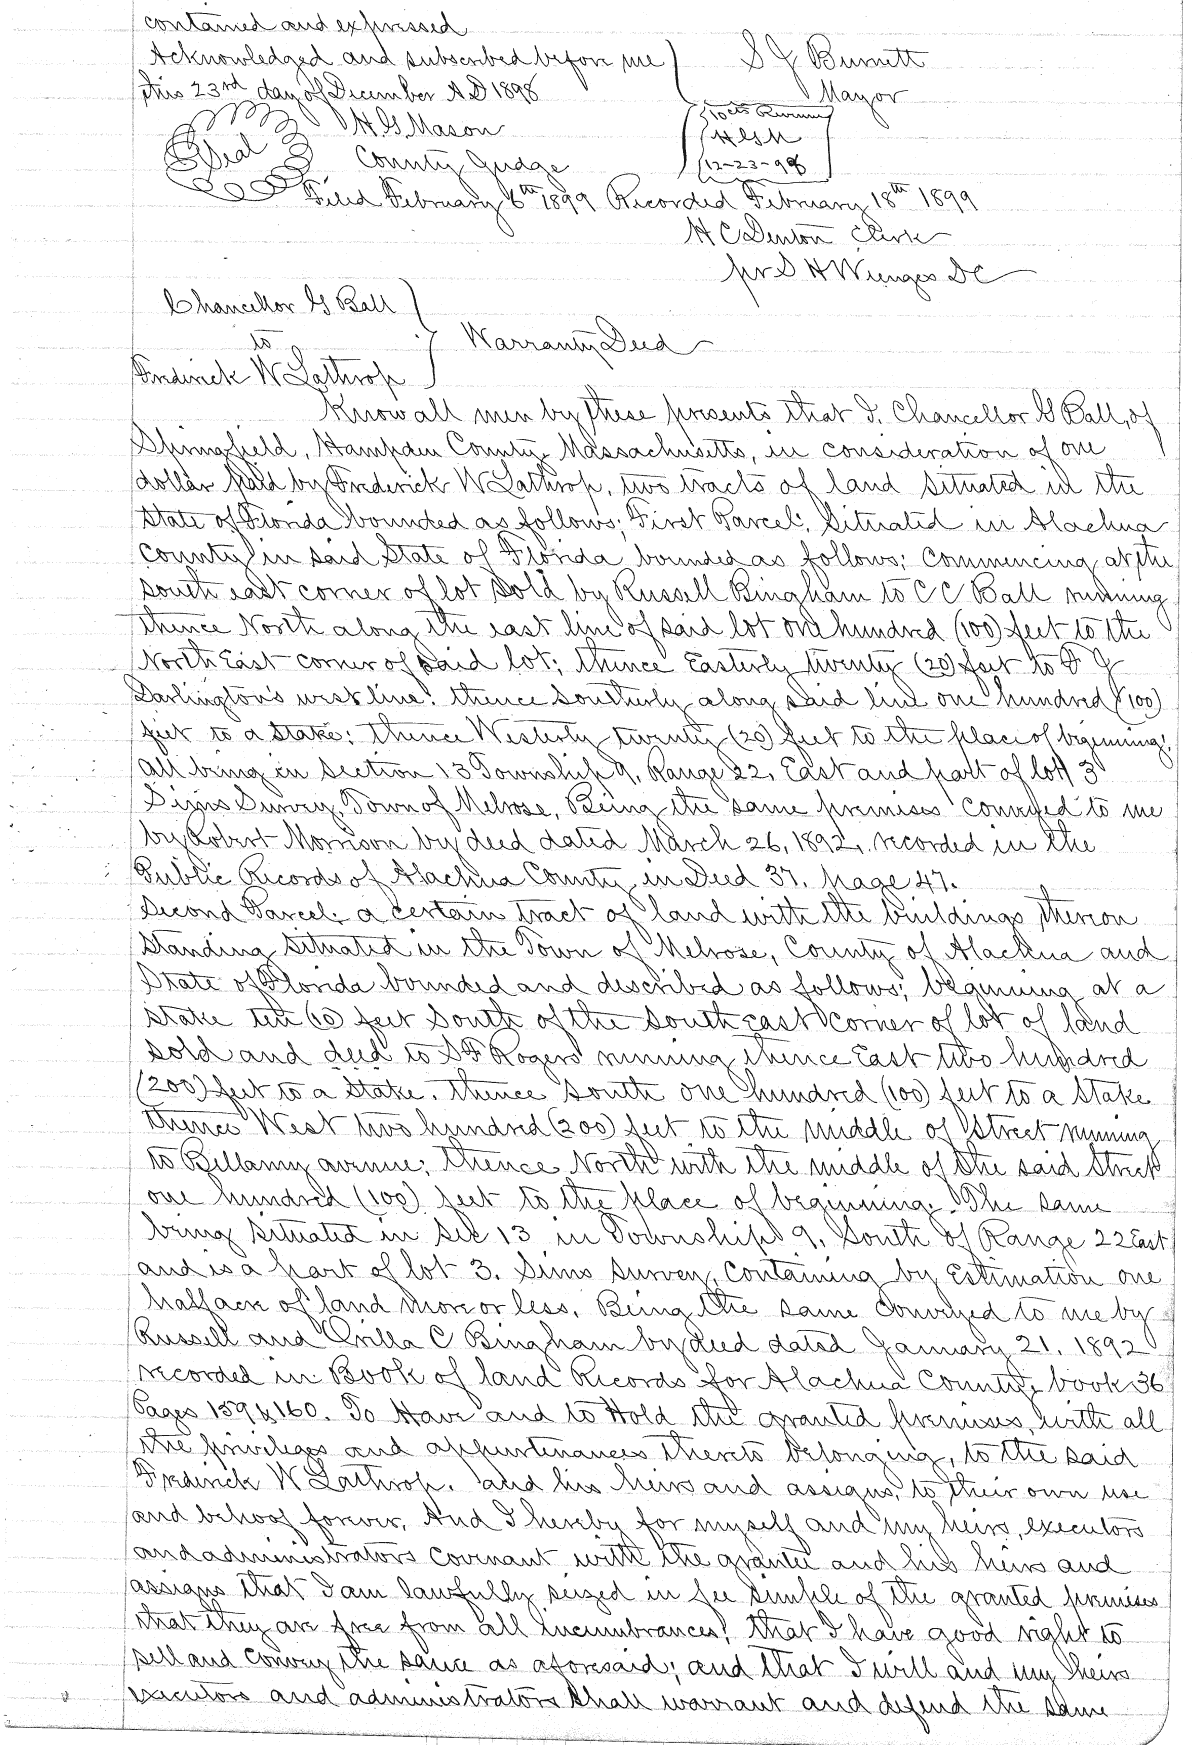 contained and expressed
Acknowledged and subscribed before me
this 23rd day of December A D 1898
S J Burnett
Mayor
Seal
H. G. Mason
County Judge
10 cts Revenue
H G M
12-23-98
Filed February 6th 1899 Recorded February 18th 1899
H C Denton Clerk
pr S H Wienges D C
Chancellor G Ball
to
Fredirick W Lathrop
Warranty Deed
Know all men by these presents that I, Chancellor G Ball, of
Springfield, Hampden County, Massachusetts, in consideration of one
dollar paid by Fredirick W Lathrop, two tracts of land situated in the
State of Florida bounded as follows; First Parcel; Situated in Alachua
County in said State of Florida bounded as follows; Commencing at the
south east corner of lot sold by Russell Bingham to C C Ball running
thence North along the east line of said lot one hundred (100) feet to the
North East corner of said lot; thence Easterly twenty (20) feet to F J
Darlington's west line; thence Southerly along said line one hundred (100)
feet to a stake; thence Westerly twenty (20) feet to the place of beginning;
all being in section 13 Township 9, Range 22, East and part of lot 3
Sims Survey, Town of Melrose, Being the same premises conveyed to me
by Robert Morrison by deed dated March 26, 1892, recorded in the
Public Records of Alachua County in Deed 37, page 47.
Second Parcel; a certain tract of land with the buildings thereon
standing situated in the Town of Melrose, County of Alachua and
State of Florida bounded and described as follows; beginning at a
stake ten (10) feet South of the South East corner of lot of land
sold and deed to S F Rogers running thence East two hundred
(200) feet to a stake, thence South one hundred (100) feet to a stake
thence West two hundred (200) feet to the middle of street running
to Bellamy avenue; thence North with the middle of the said street
one hundred (100) feet to the place of beginning. The same
being situated in Sec 13 in Township 9, South of Range 22 East
and is a part of lot 3. Sims survey, containing by Estimation one
half acre of land more or less, Being the same conveyed to me by
Russell and Orilla C Bingham by deed dated January 21, 1892
recorded in Book of land Records for Alachua County, book 36
Pages 159 & 160. To Have and to Hold the granted premises, with all
the privileges and appurtenances thereto belonging, to the said
Fredirick W Lathrop, and his heirs and assigns, to their own use
and behoof forever, And I hereby for myself and my heirs, executors
and administrators covenant with the grantee and his heirs and
assigns that I am lawfully seized in fee simple of the granted premises
that they are free from all incumbrances; that I have good right to
sell and convey the same as aforesaid; and that I will and my heirs
executors and administrators shall warrant and defend the same